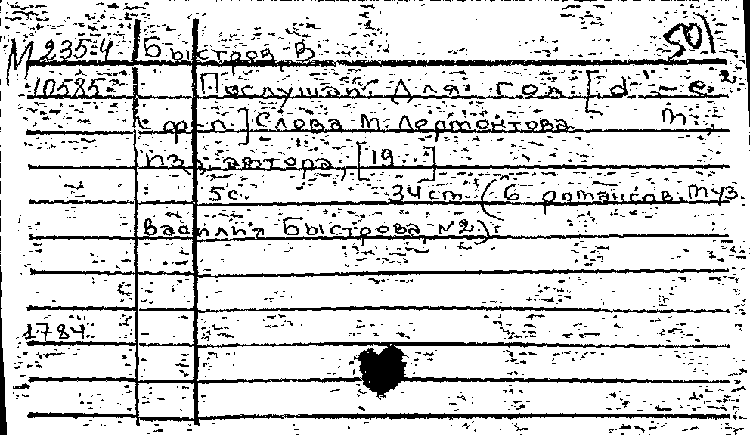 501
М 235-4 Быстров В.
10585- Послушай. Для гол. [d¹-e²
с ф-п.] Слова М. Лермонтова. М.,
изд. автора, [19...]
5с. 34см (6 романсов. Муз.
Василия Быстрова, №2).
1784